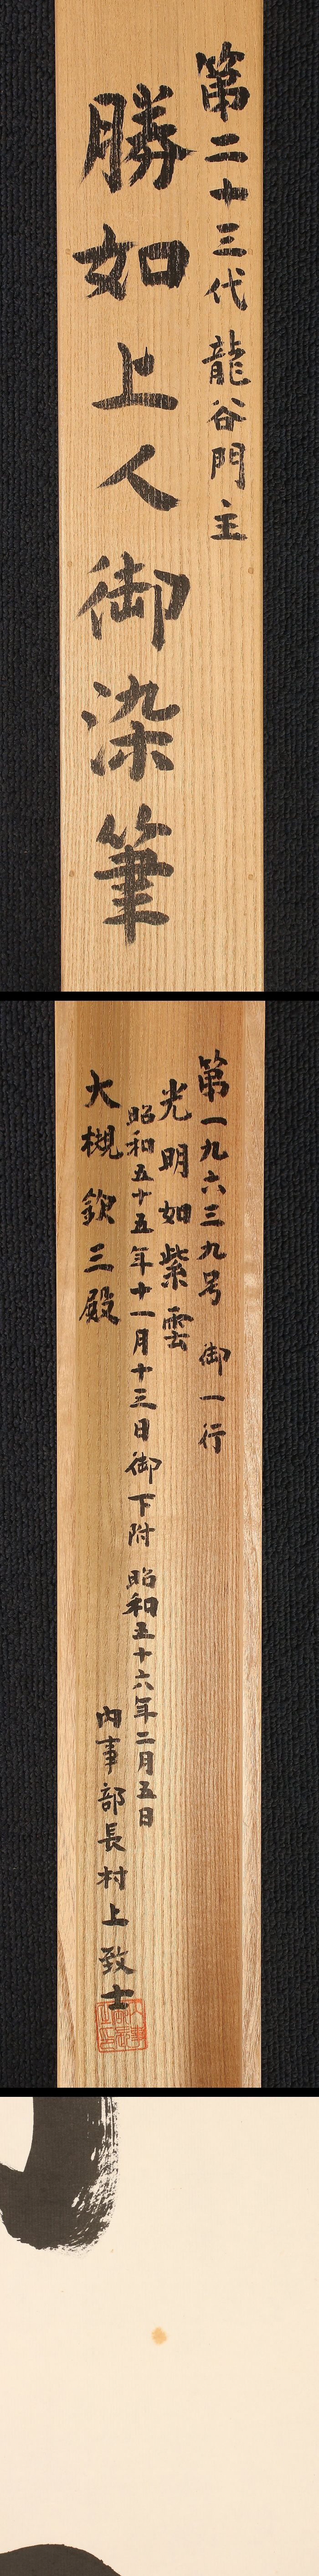 第二十三代 龍谷門主
勝如上人御染筆
第一九六三九号 御一行
光明如紫雲
昭和五十五年十一月十三日御下附 昭和五十六年二月五日
内事部長村上致士
大槻欽三殿